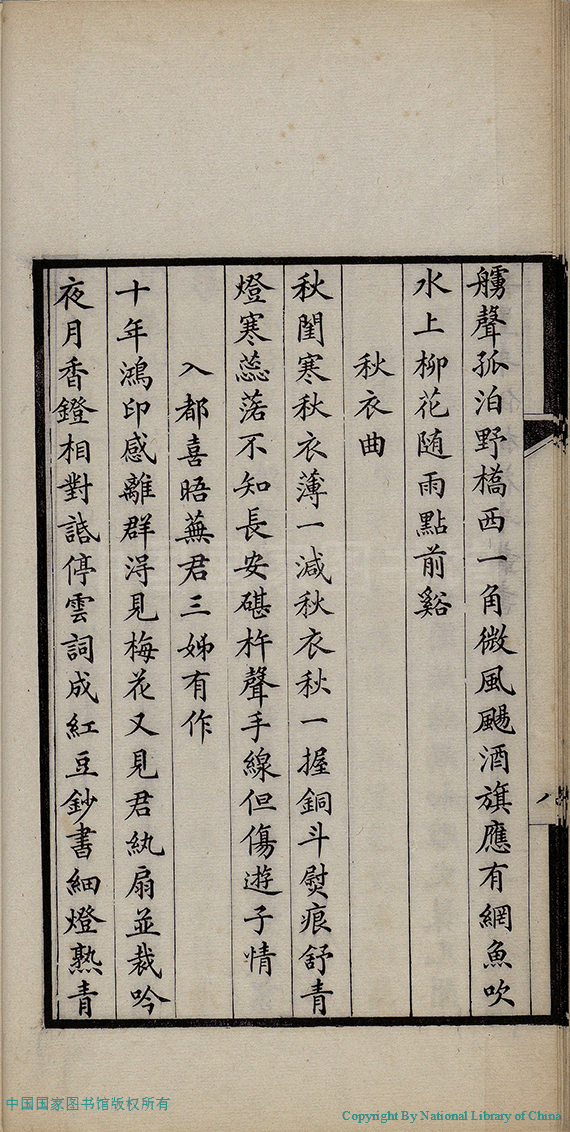 艣聲孤泊野橋西一角微風颺酒旗應有網魚吹
水上柳花随雨點前谿
秋衣曲
秋閨寒秋衣薄一減秋衣秋一握銅斗熨痕舒青
燈寒蕊落不知長安碪杵聲手線但傷遊子情
入都喜晤蕪君三姊有作
十年鴻印感離群淂見梅花又見君紈扇並裁吟
夜月香鐙相對話停雲詞成紅豆鈔書細燈熟青
八
中国国家图书馆版权所有
Copyright By National Library of China